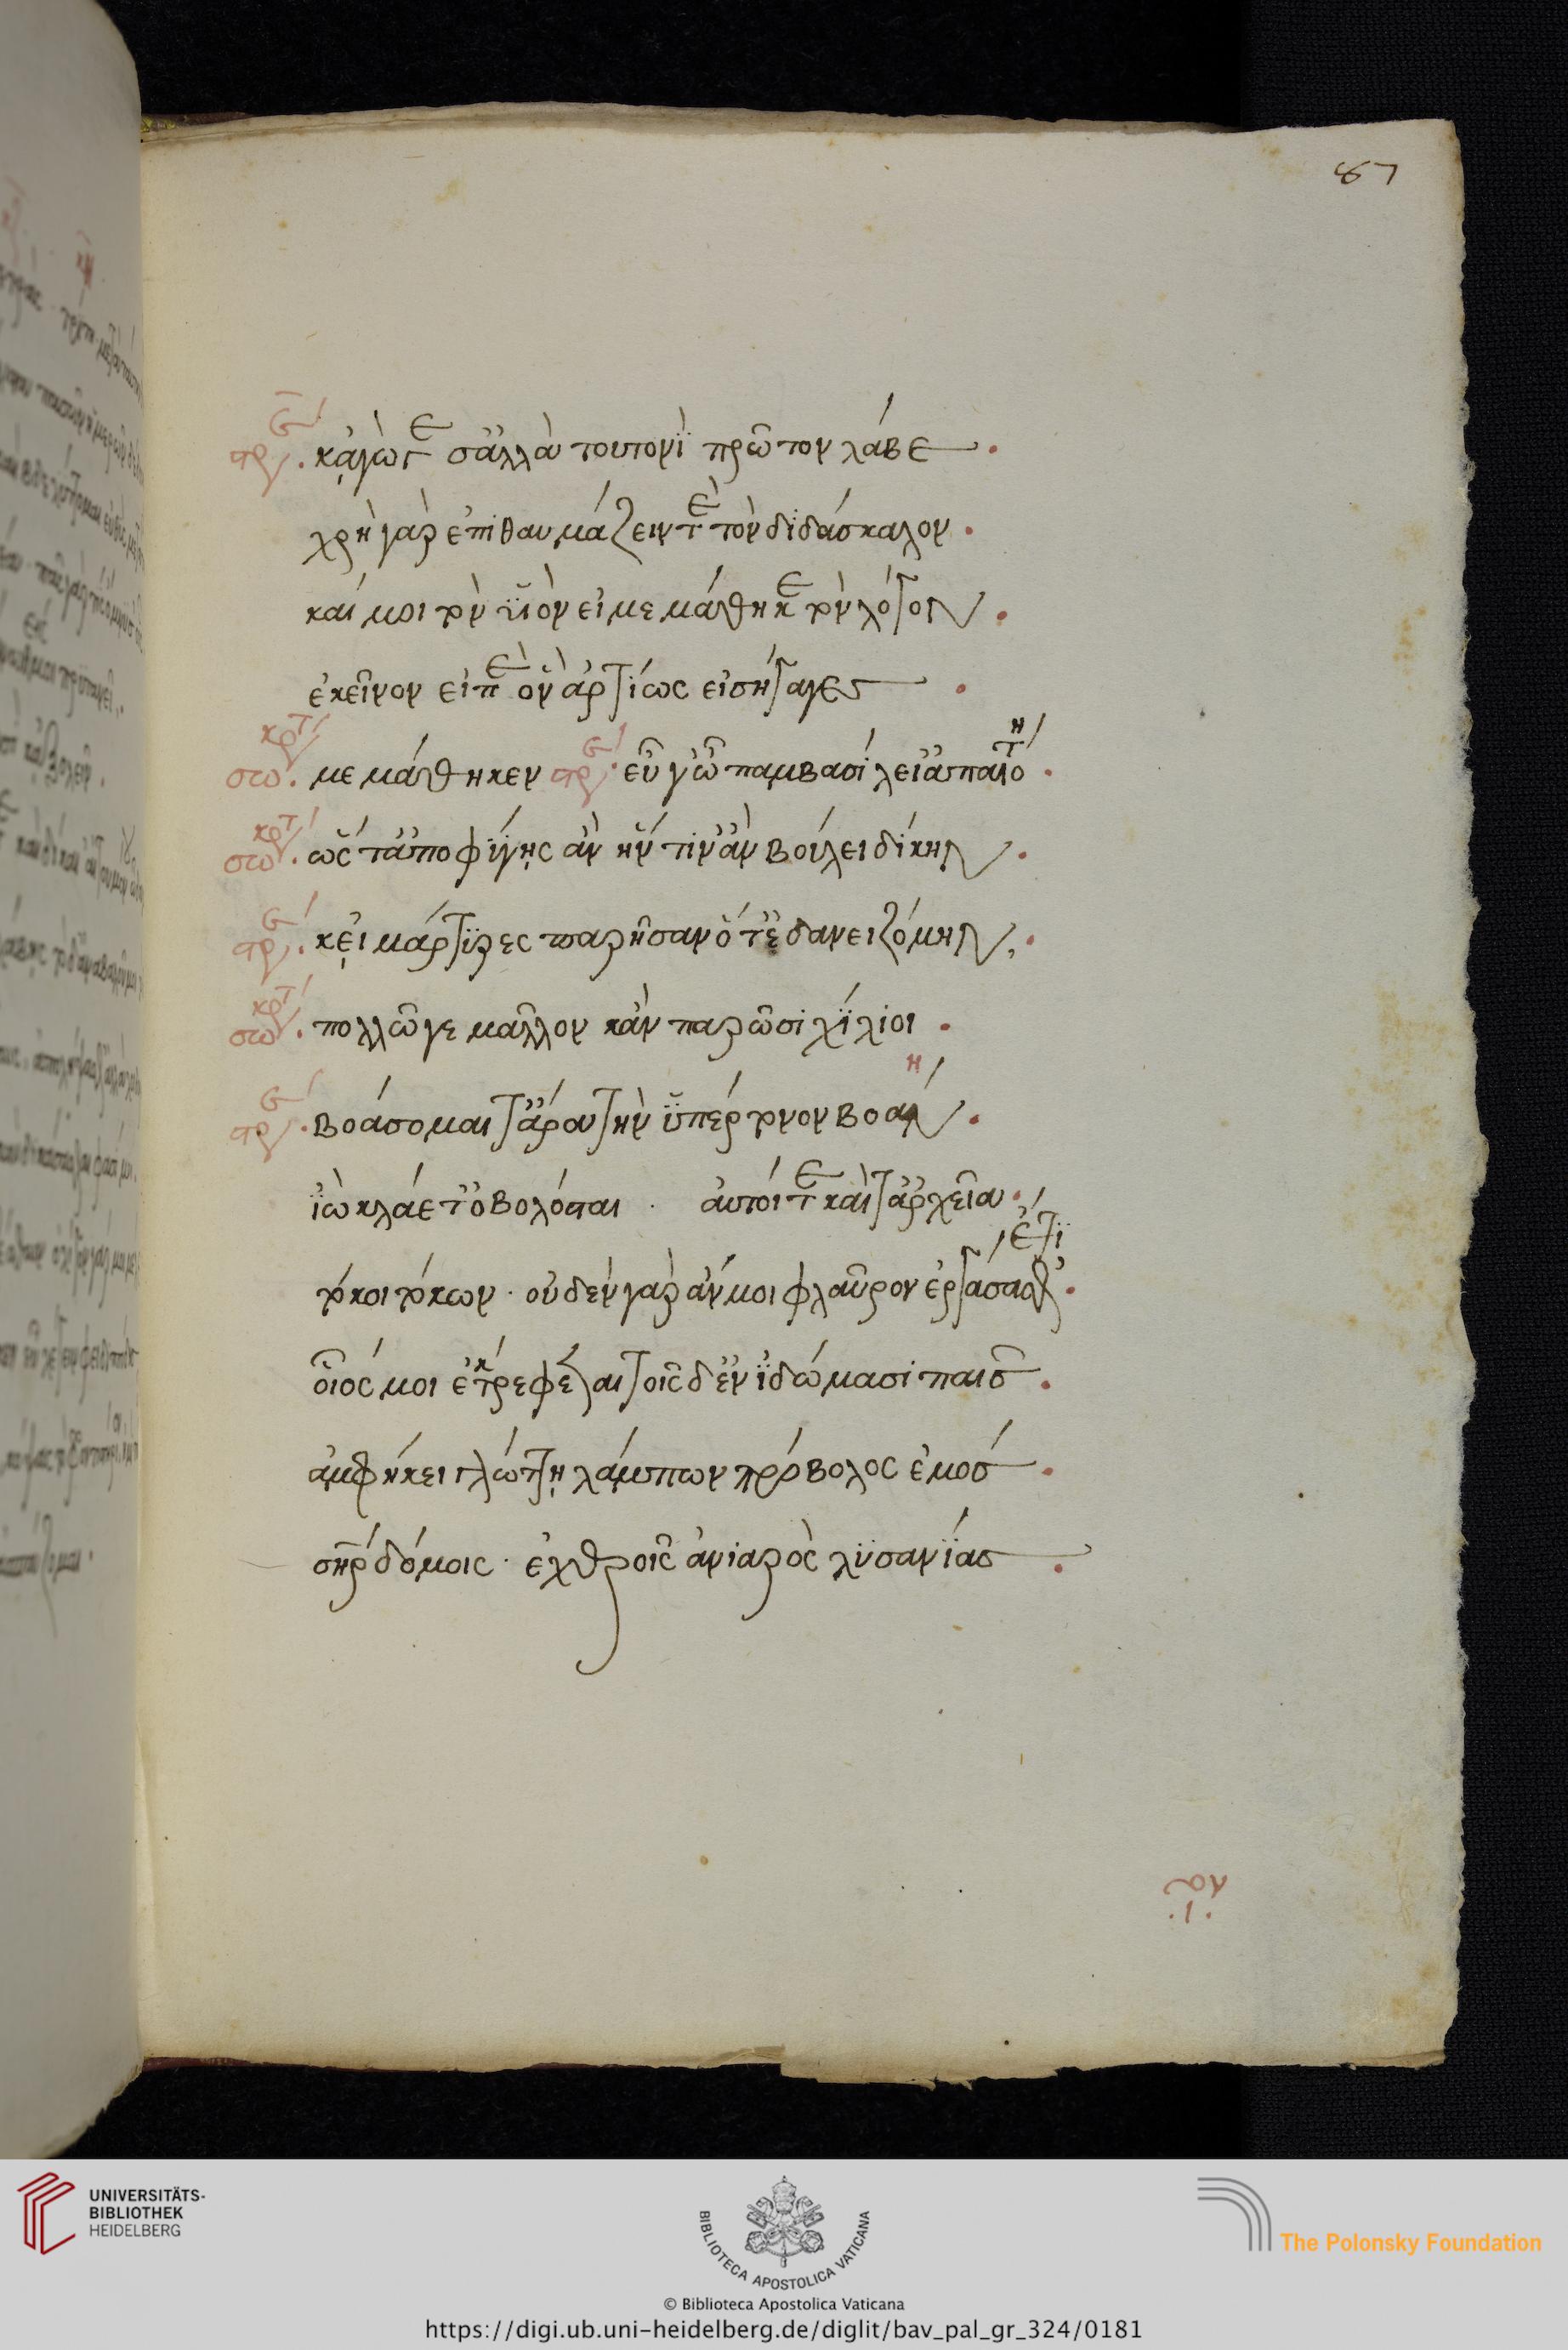 87
στρ. κᾀγώγέ σ' ἀλλὰ τουτονὶ πρῶτον λάβε.
χρὴ γὰρ ἐπιθαυμάζειν τὲ τὸν διδάσκαλον.
καί μοι τὸν υἱὸν εἰ μεμάθηκε τὸν λόγον.
ἐκεῖνον εἰπὲ ὃν ἀρτίως εἰσήγαγες.
σω. μεμάθηκεν στρ. εὖ γ' ὦ παμβασίλει' ἀπαιόλη.
σω. ὥστ' ἀποφύγῃς ἂν ἥντιν' ἂν βούλει δίκην.
στρ. κεἰ μάρτυρες παρῆσαν ὅτ' ἐδανειζόμην.
σω. πολλῷ γε μᾶλλον κἂν παρῶσι χίλιοι.
στρ. βοάσομαι τἄρα τὴν ὑπέρτονον βοάν.
ἰὼ κλάετ' ὀβολόσται · αὐτοί τε καὶ τἀρχεῖα.
τόκοι τόκων · οὐδὲν γὰρ ἄν μοι φλαῦρον ἐργάσαισθ' ἔτι.
οἷός μοι ἐκτρέφεται τοῖσδ' ἐνὶ δώμασι παῖς.
ἀμφήκει γλώττῃ λάμπων πρόβολος ἐμός.
σωτὴρ δόμοις · ἐχθροῖς ἀνιαρὸς λυσανίας.
UNIVERSITÄTS-
BIBLIOTHEK
HEIDELBERG
BIBLIOTECA APOSTOLICA VATICANA
The Polonsky Foundation
© Biblioteca Apostolica Vaticana
https://digi.ub.uni-heidelberg.de/diglit/bav_pal_gr_324/0181